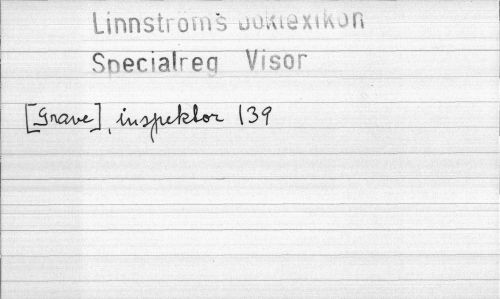 Linnströms Boklexikon
Specialreg Visor
[Grave], inspektor 139